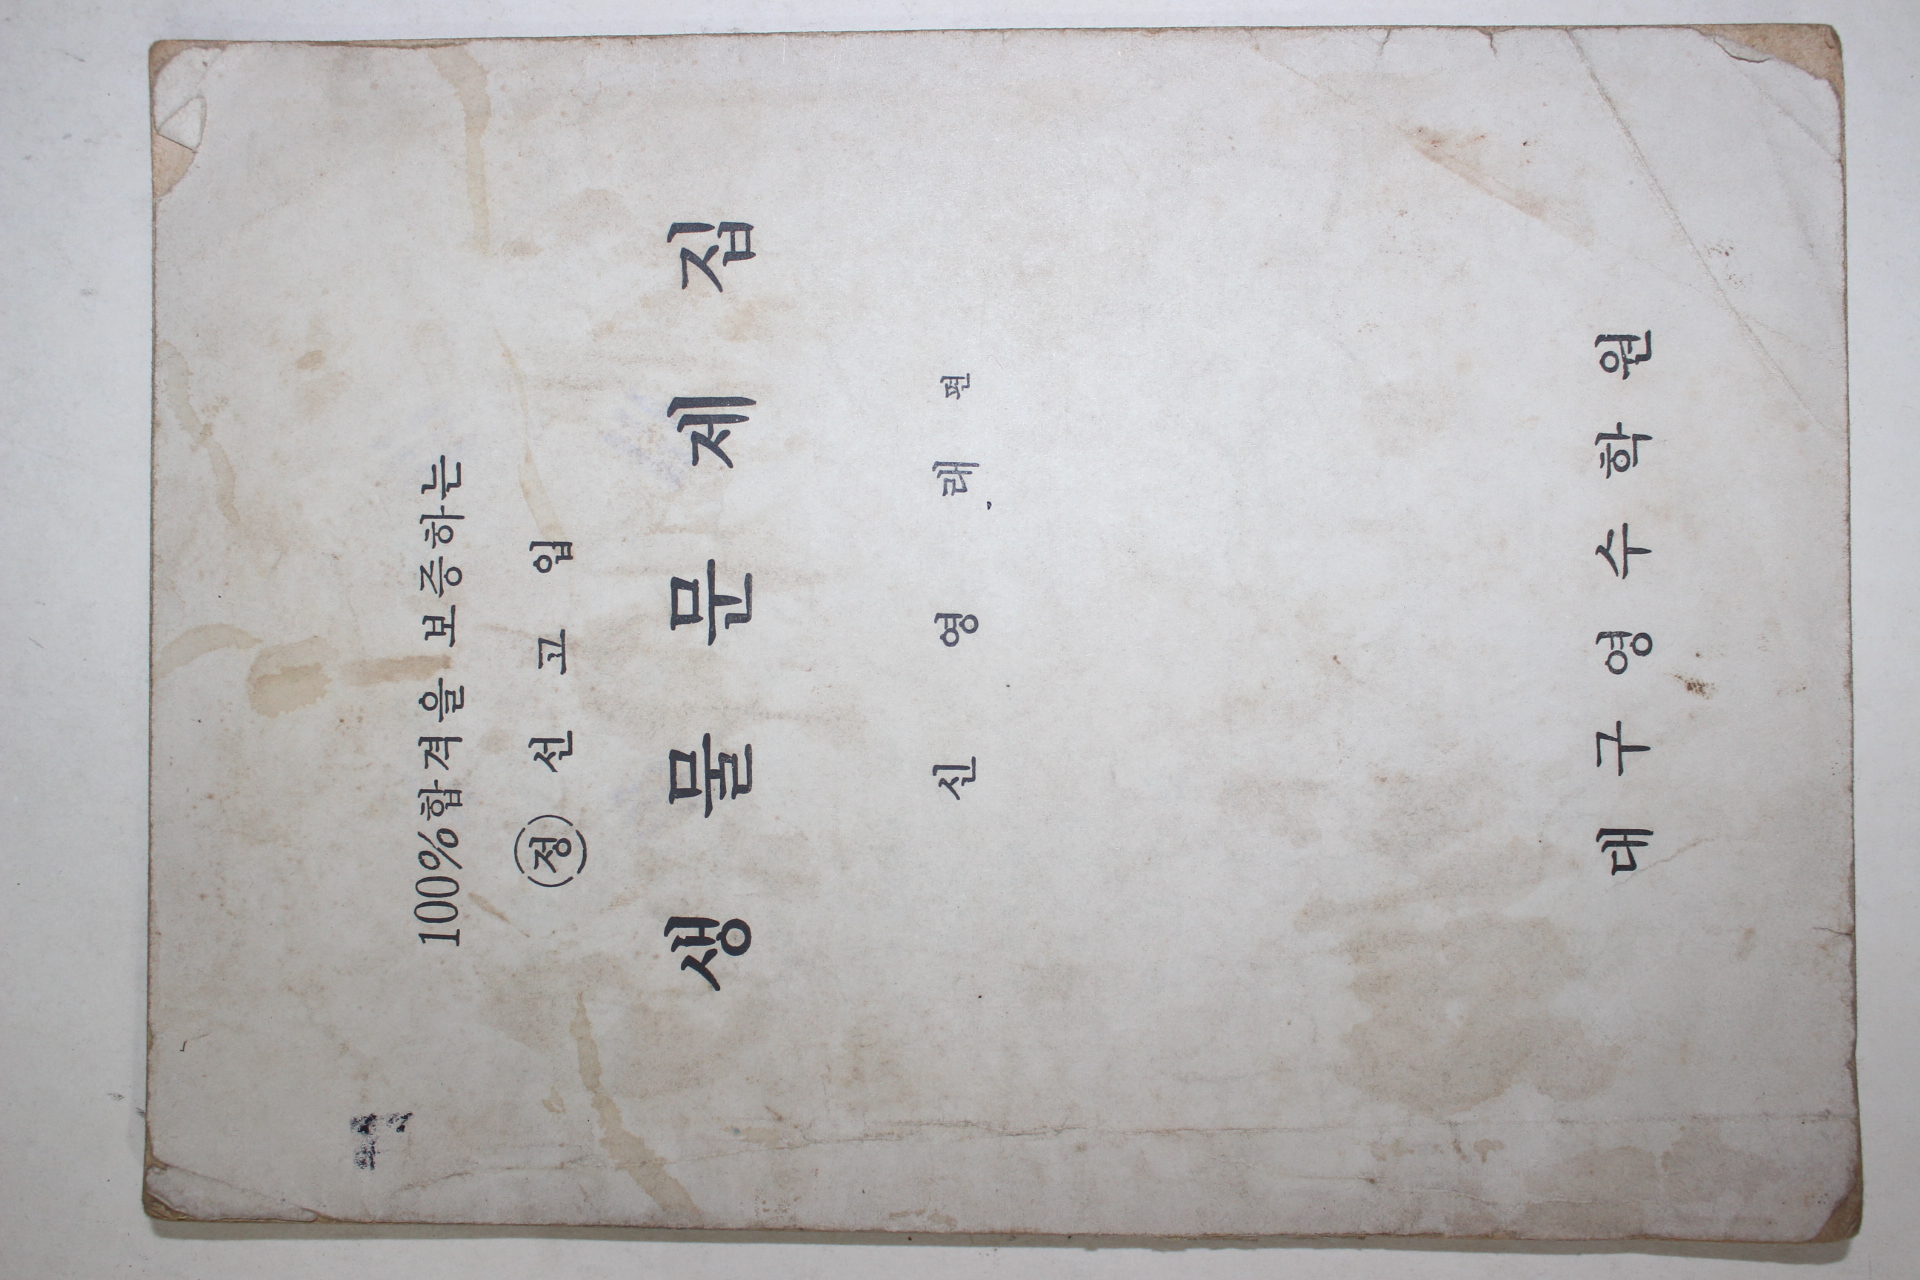 100%합격을 보증하는
정 선 고 입
생 물 문 제 집
신 영 래 편
대 구 영 수 학 원